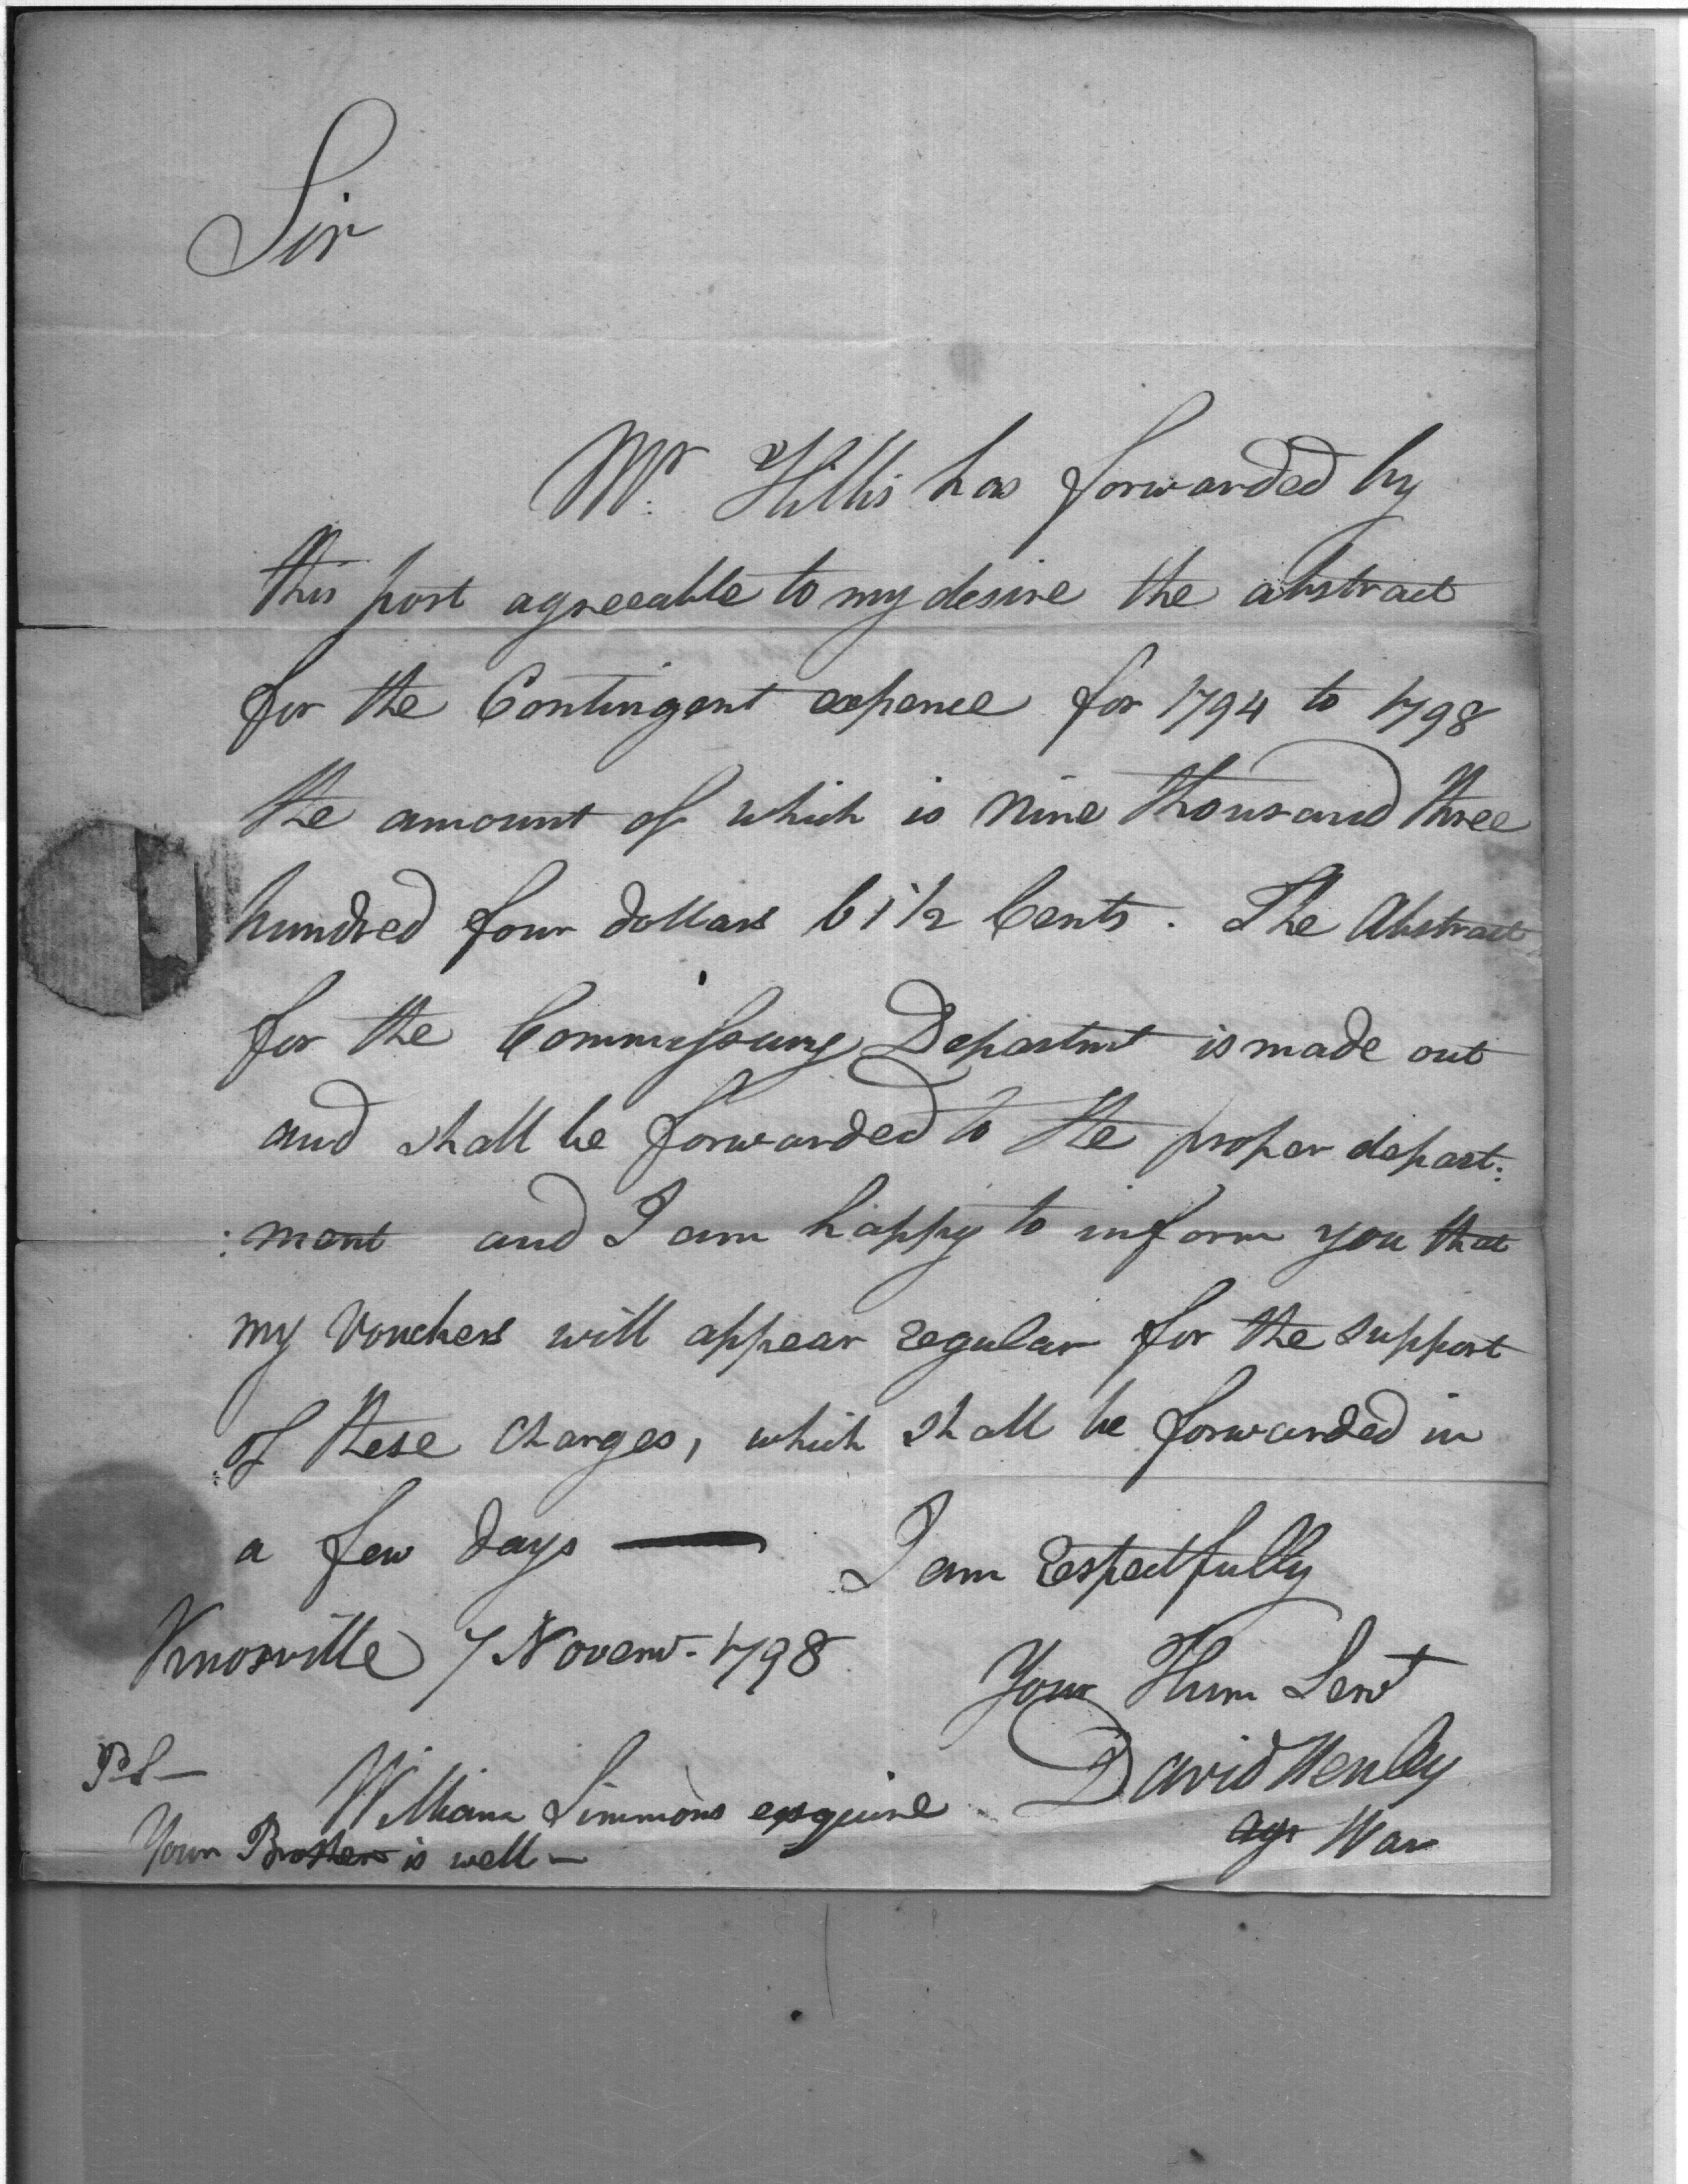 Sir
Mr. Hillis has forwarded by
this post agreeable to my desire the abstract
for the Contingent expence for 1794 to 1798
the amount of which is nine thousand three
hundred four dollars 61½ Cents. The Abstract
for the Commissary Departmt is made out
and shall be forwarded to the proper depart:
:ment and I am happy to inform you that
my Vouchers will appear regular for the support
of these charges, which shall be forwarded in
a few days — I am respectfully
Knoxville 7 Novem. 1798
Your Hum Servt
David Henley
agt War
PS —
William Simmons esquire
Your Brother is well —